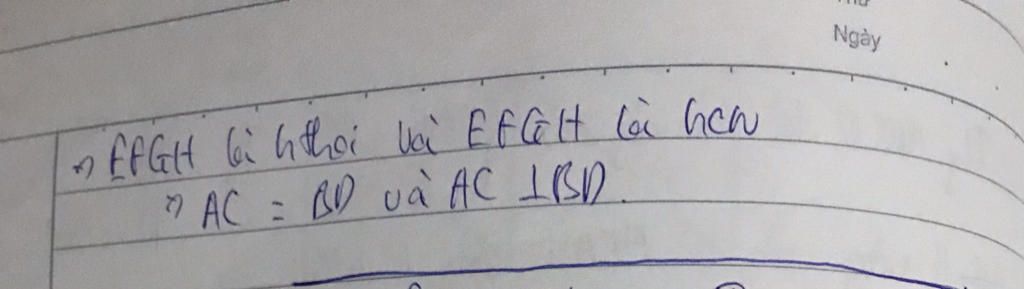 Thứ
Ngày
=> EFGH là hthoi và EFGH là hcn
=> AC = BD và AC ⊥ BD.